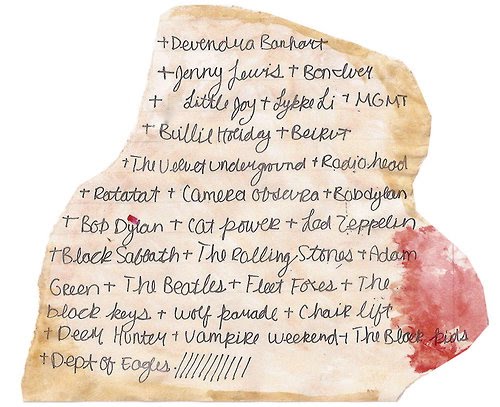 +Devendra Banhart
+Jenny Lewis + Bon-Iver
+ Little Joy + Lykke Li + MGMT
+ Billie Holiday + Beirut
+The Velvet underground +Radiohead
+Ratatat + Camera obscura +Bobdylan
+Bob Dylan + cat power + Led Zeppelin
+Black Sabbath + The Rolling Stones +Adam
Green + The Beatles + Fleet Foxes + The
black keys + wolf parade + Chair lift
+Deer Hunter + Vampire weekend + The Black kids
+Dept of Eagles. //////////